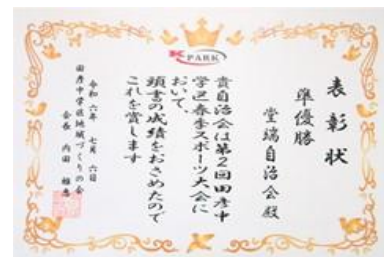 K PARK
表彰状
準優勝
堂端自治会殿
貴自治会は第2回田彦中
学区春季スポーツ大会に
おいて、
頭書の成績をおさめたので
これを賞します
令和六年 七月 六日
田彦中学区地域づくりの会
会長 内田